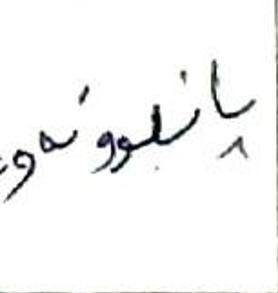 پانبوونەوە